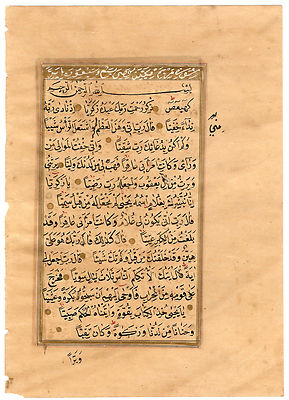 سورة مريم مكية
بسم الله الرحمن الرحيم
كهيعص ذكر رحمت ربك عبده زكريا اذ نادى ربه
نداء خفيا قال رب اني وهن العظم مني واشتعل الرأس شيبا
ولم اكن بدعائك رب شقيا واني خفت الموالي من
وراءي وكانت امرأتي عاقرا فهب لي من لدنك وليا يرثني
ويرث من آل يعقوب واجعله رب رضيا يا زكريا
انا نبشرك بغلام اسمه يحيى لم نجعل له من قبل سميا
قال رب انى يكون لي غلام وكانت امرأتي عاقرا وقد
بلغت من الكبر عتيا قال كذلك قال ربك هو علي
هين وقد خلقتك من قبل ولم تك شيئا قال رب اجعل لي
آية قال آيتك الا تكلم الناس ثلاث ليال سويا فخرج
على قومه من المحراب فاوحى اليهم ان سبحوا بكرة وعشيا
يا يحيى خذ الكتاب بقوة وآتيناه الحكم صبيا
وحنانا من لدنا وزكوة وكان تقيا
وبرا